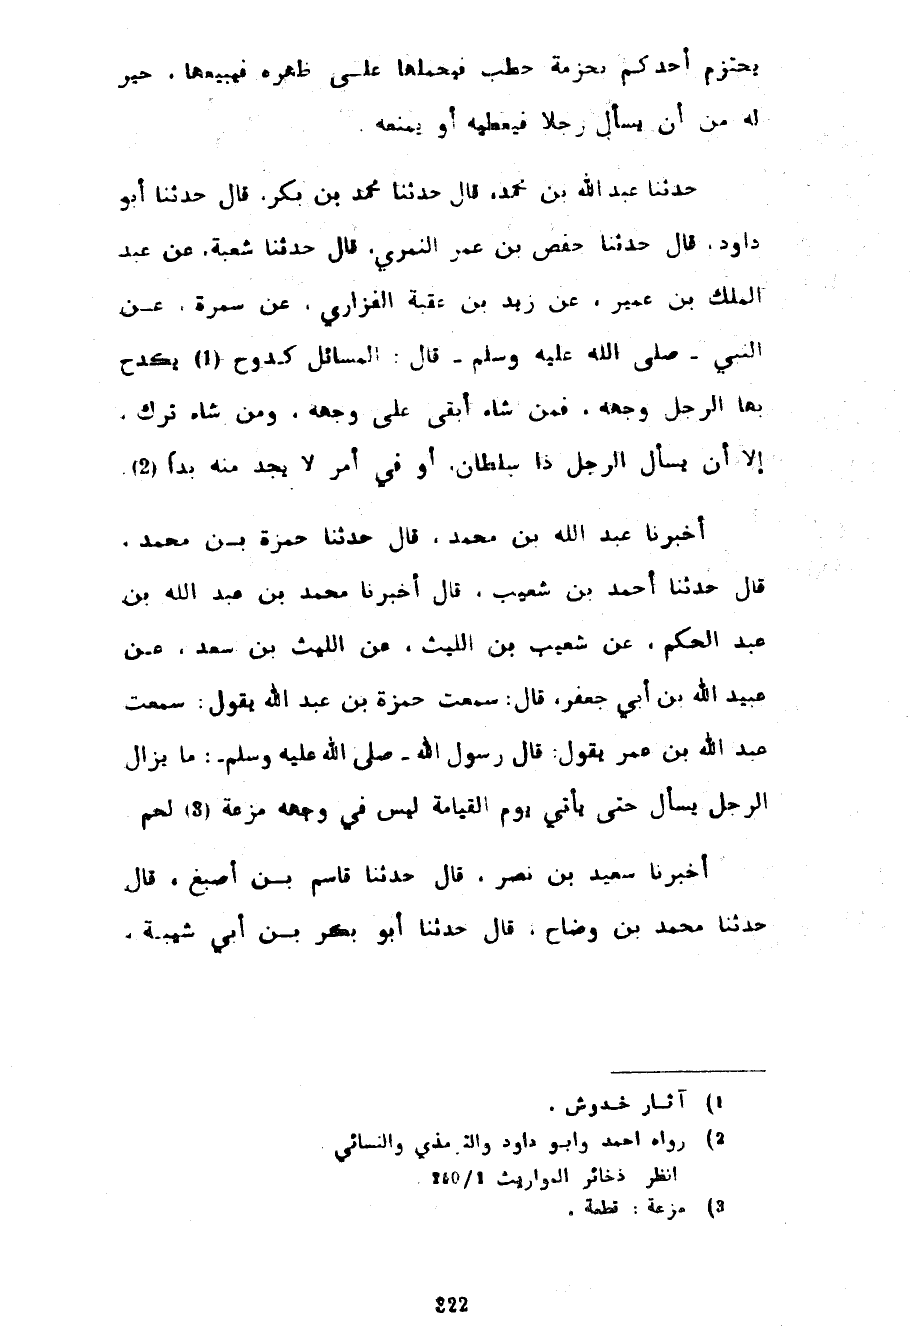 يحتزم أحدكم بحزمة حطب فيحملها على ظهره فيبيعها ، خير
له من أن يسأل رجلا فيعطيه أو يمنعه .
حدثنا عبد الله بن محمد، قال حدثنا محمد بن بكر، قال حدثنا أبو
داود ، قال حدثنا حفص بن عمر النمري، قال حدثنا شعبة، عن عبد
الملك بن عمير ، عن زيد بن عقبة الفزاري ، عن سمرة ، عن
النبي ـ صلى الله عليه وسلم ـ قال : المسائل كدوح (1) يكدح
بها الرجل وجهه ، فمن شاء أبقى على وجهه ، ومن شاء ترك ،
إلا أن يسأل الرجل ذا سلطان، أو في أمر لا يجد منه بدا (2) .
أخبرنا عبد الله بن محمد ، قال حدثنا حمزة بن محمد ،
قال حدثنا أحمد بن شعيب ، قال أخبرنا محمد بن عبد الله بن
عبد الحكم ، عن شعيب بن الليث ، عن الليث بن سعد ، عن
عبيد الله بن أبي جعفر، قال: سمعت حمزة بن عبد الله يقول: سمعت
عبد الله بن عمر يقول: قال رسول الله ـ صلى الله عليه وسلم ـ : ما يزال
الرجل يسأل حتى يأتي يوم القيامة ليس في وجهه مزعة (3) لحم
أخبرنا سعيد بن نصر ، قال حدثنا قاسم بن أصبغ ، قال
حدثنا محمد بن وضاح ، قال حدثنا أبو بكر بن أبي شيبة ،
1) آثار خدوش .
2) رواه احمد وابو داود والترمذي والنسائي
انظر ذخائر المواريث 1/260 .
3) مزعة : قطعة .
322